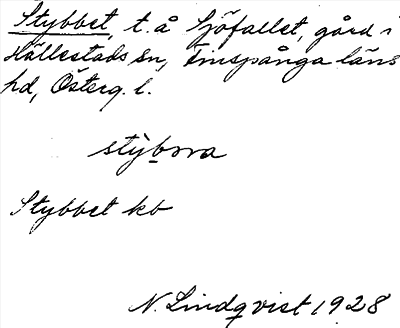 Stybbet, t. å Sjöfallet, gård i
Hällestads sn, Finspånga läns
hd, Österg. l.
Stybbet kb
N. Lindqvist 1928